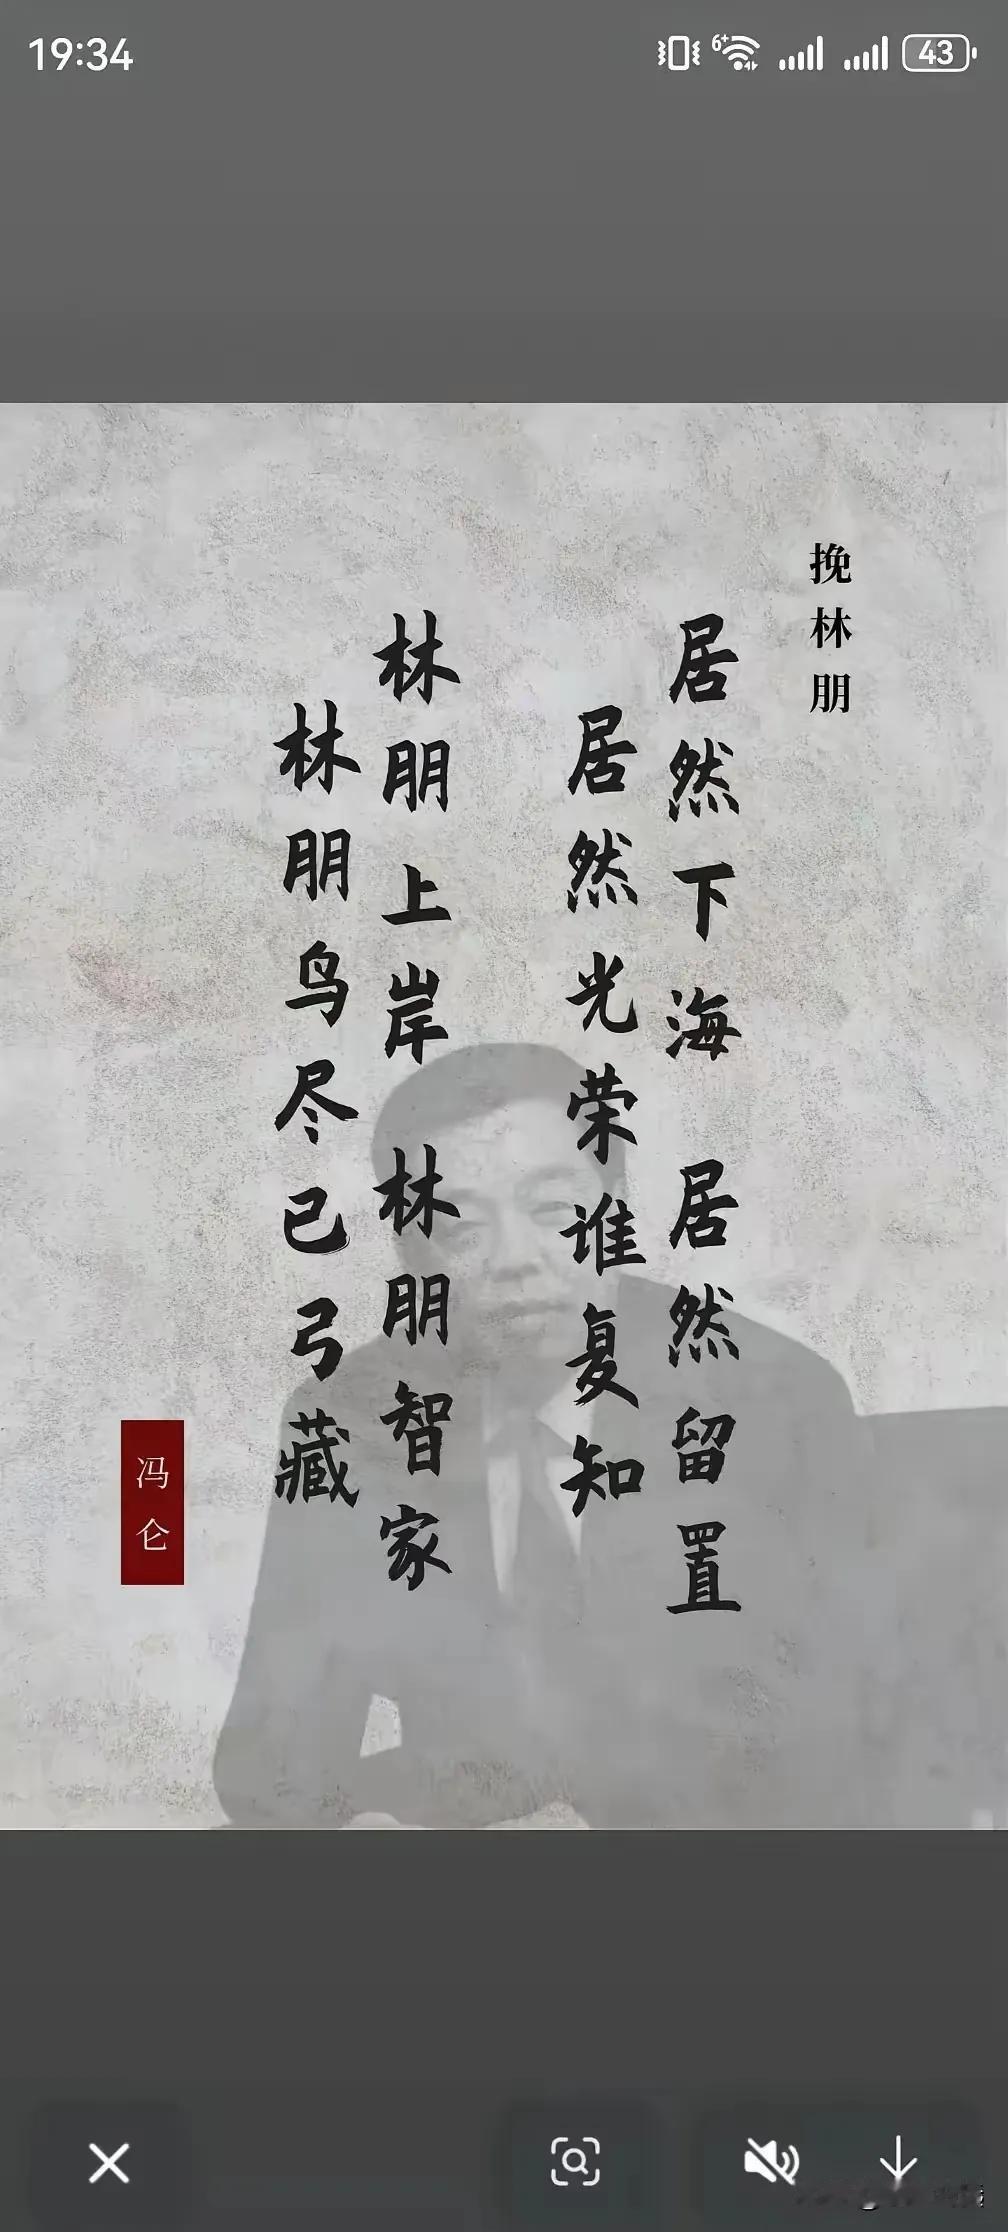 19:34
43
挽林朋
居然下海 居然留置
居然光荣谁复知
林朋上岸 林朋智家
林朋鸟尽已弓藏
冯仑